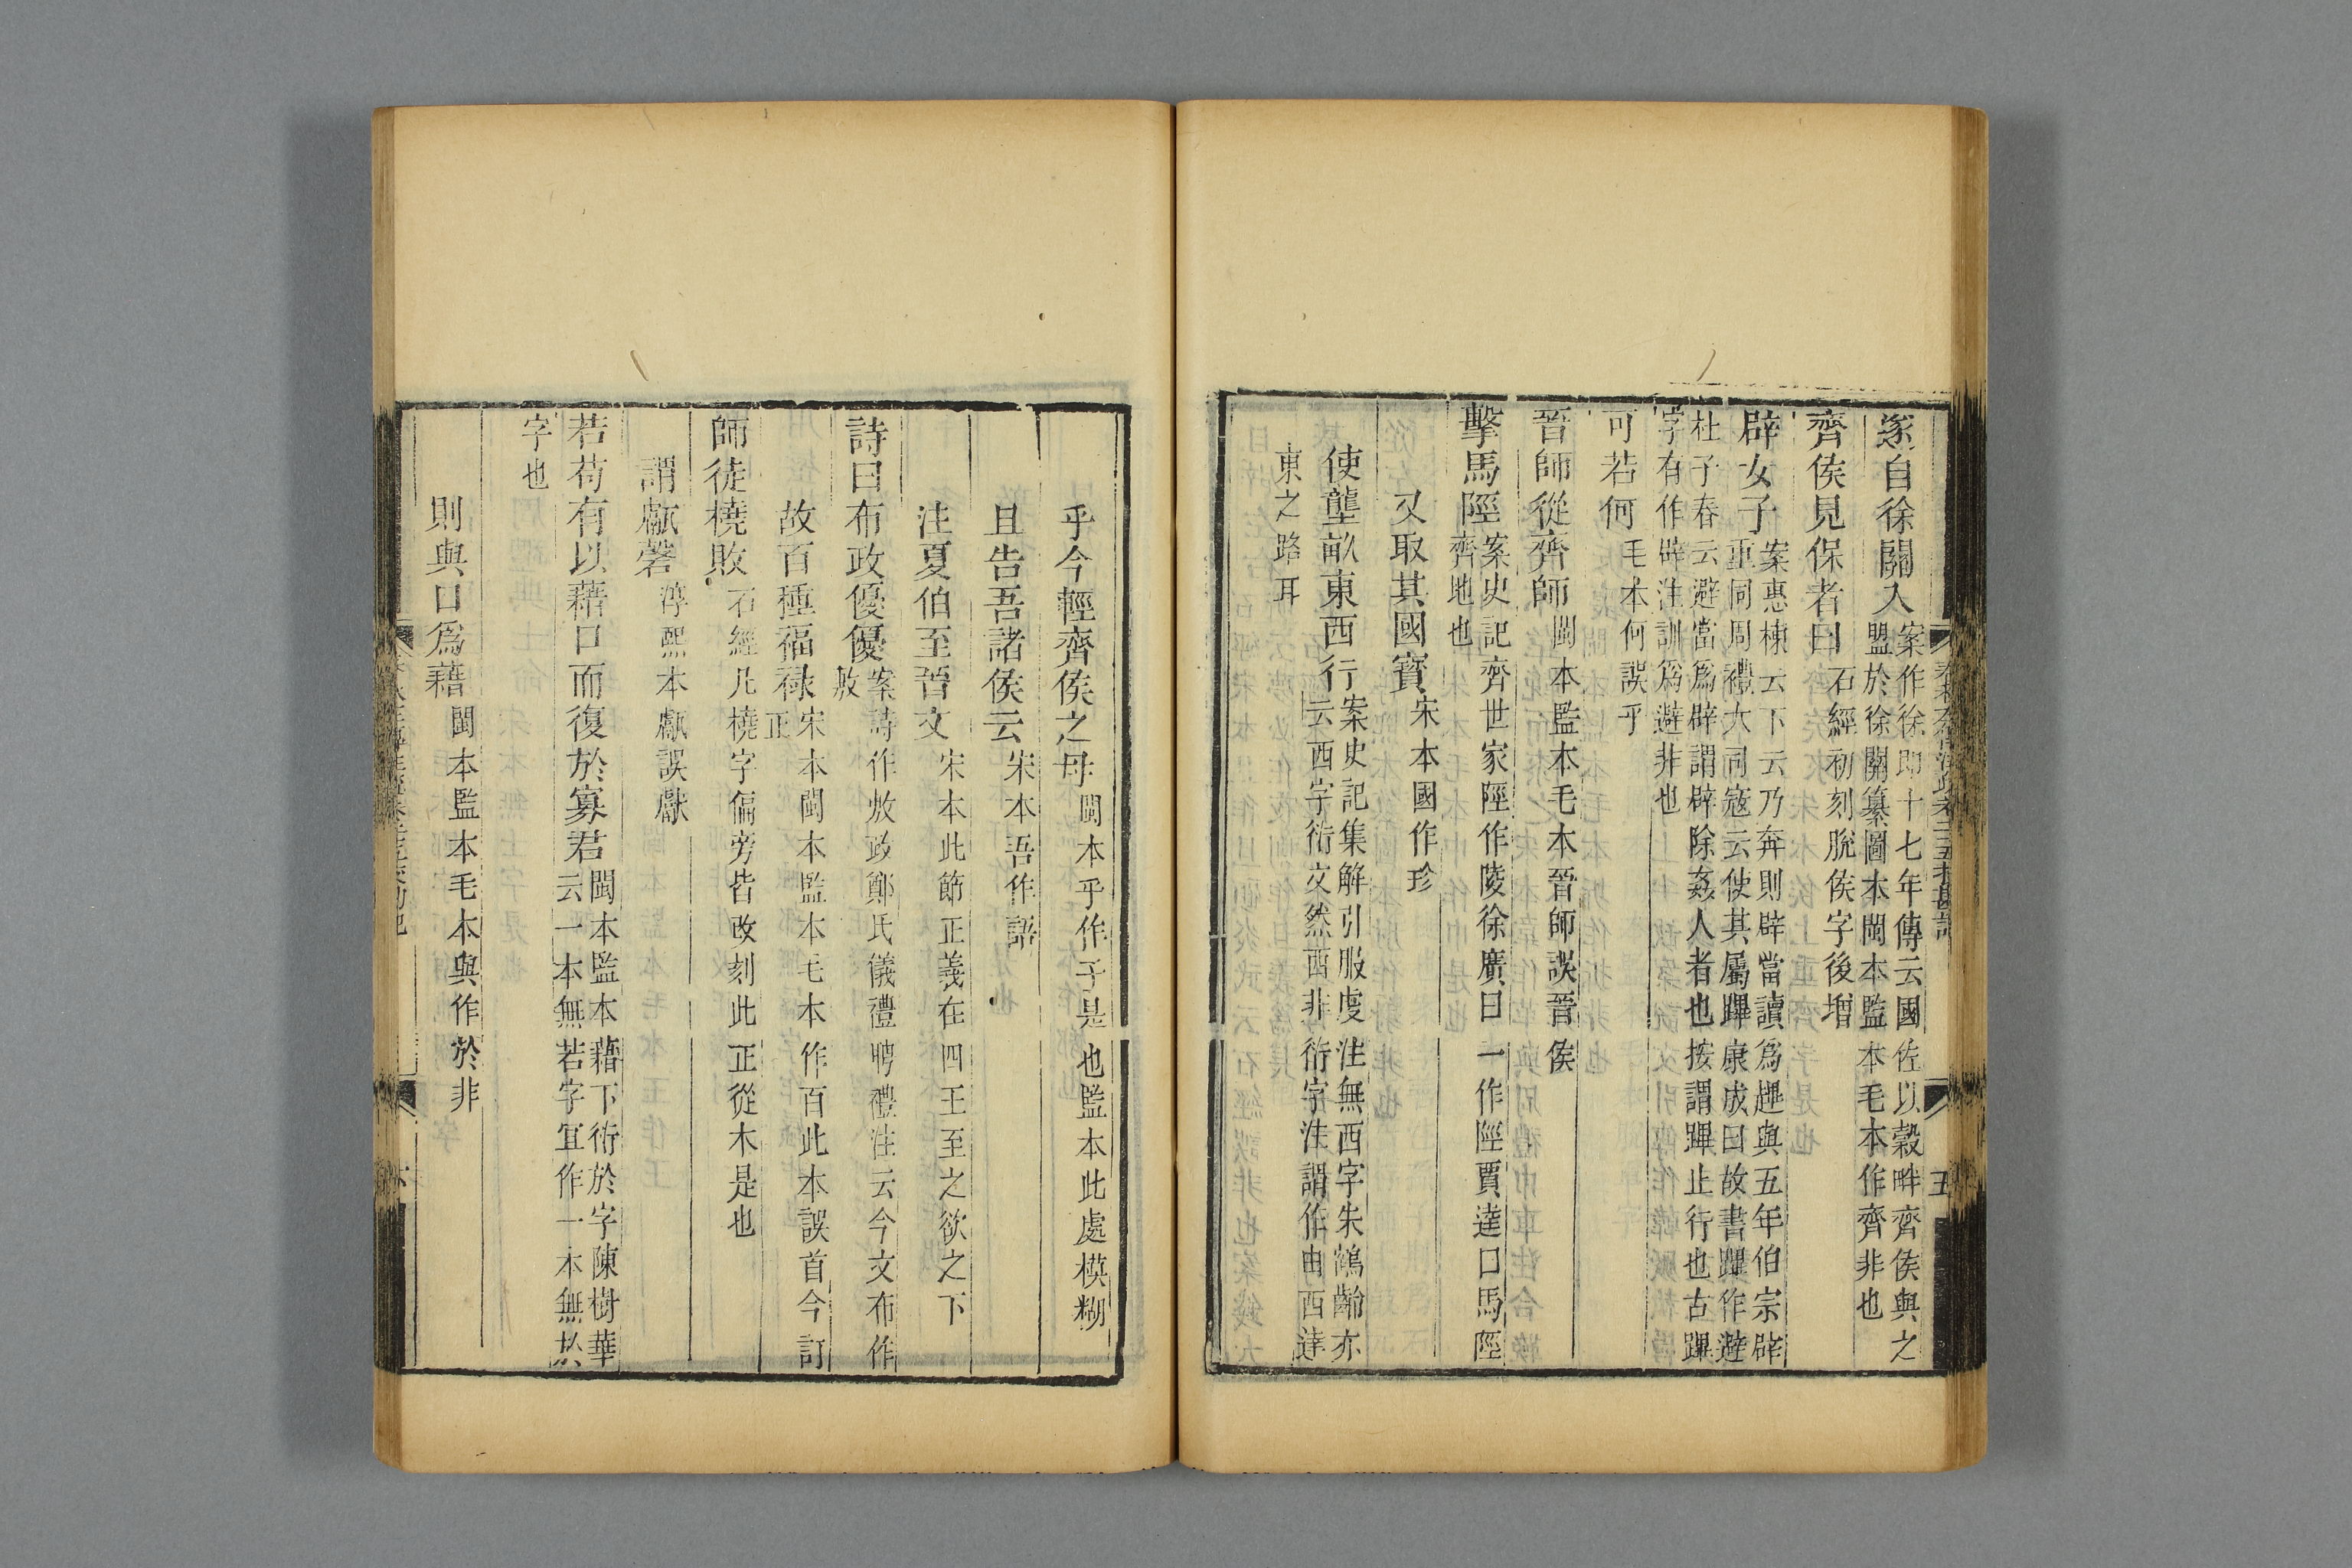 遂自徐關入案作徐即十七年傳云國佐以穀畔齊侯與之
盟於徐關纂圖本閩本監本毛本作齊非也
齊侯見保者曰石經初刻脫侯字後增
辟女子案惠棟云下云乃奔則辟當讀爲趯與五年伯宗辟
重同周禮大司寇云使其屬蹕康成曰故書蹕作避
杜子春云避當爲辟謂辟除姦人者也按謂蹕止行也古蹕
字有作辟注訓爲避非也
可若何毛本何誤乎
晉師從齊師閩本監本毛本晉師誤晉侯
擊馬陘案史記齊世家陘作陵徐廣曰一作陘賈逵曰馬陘
齊地也
又取其國寶宋本國作珍
使壟畝東西行案史記集解引服虔注無西字朱鶴齡亦
云西字衍文然西非衍字注謂作由西達
東之路耳
五
乎今輕齊侯之母閩本乎作子是也監本此處模糊
且告吾諸侯云宋本吾作語
注夏伯至晉文宋本此節正義在四王至之欲之下
詩曰布政優優案詩作敷政鄭氏儀禮聘禮注云今文布作
敷
故百種福祿宋本閩本監本毛本作百此本誤首今訂
正
師徒橈敗石經凡橈字偏旁皆改刻此正從木是也
謂甗磬淳熙本甗誤獻
若苟有以藉口而復於寡君閩本監本藉下衍於字陳樹華
云一本無若字宜作一本無於
字也
則與口爲藉閩本監本毛本與作於非